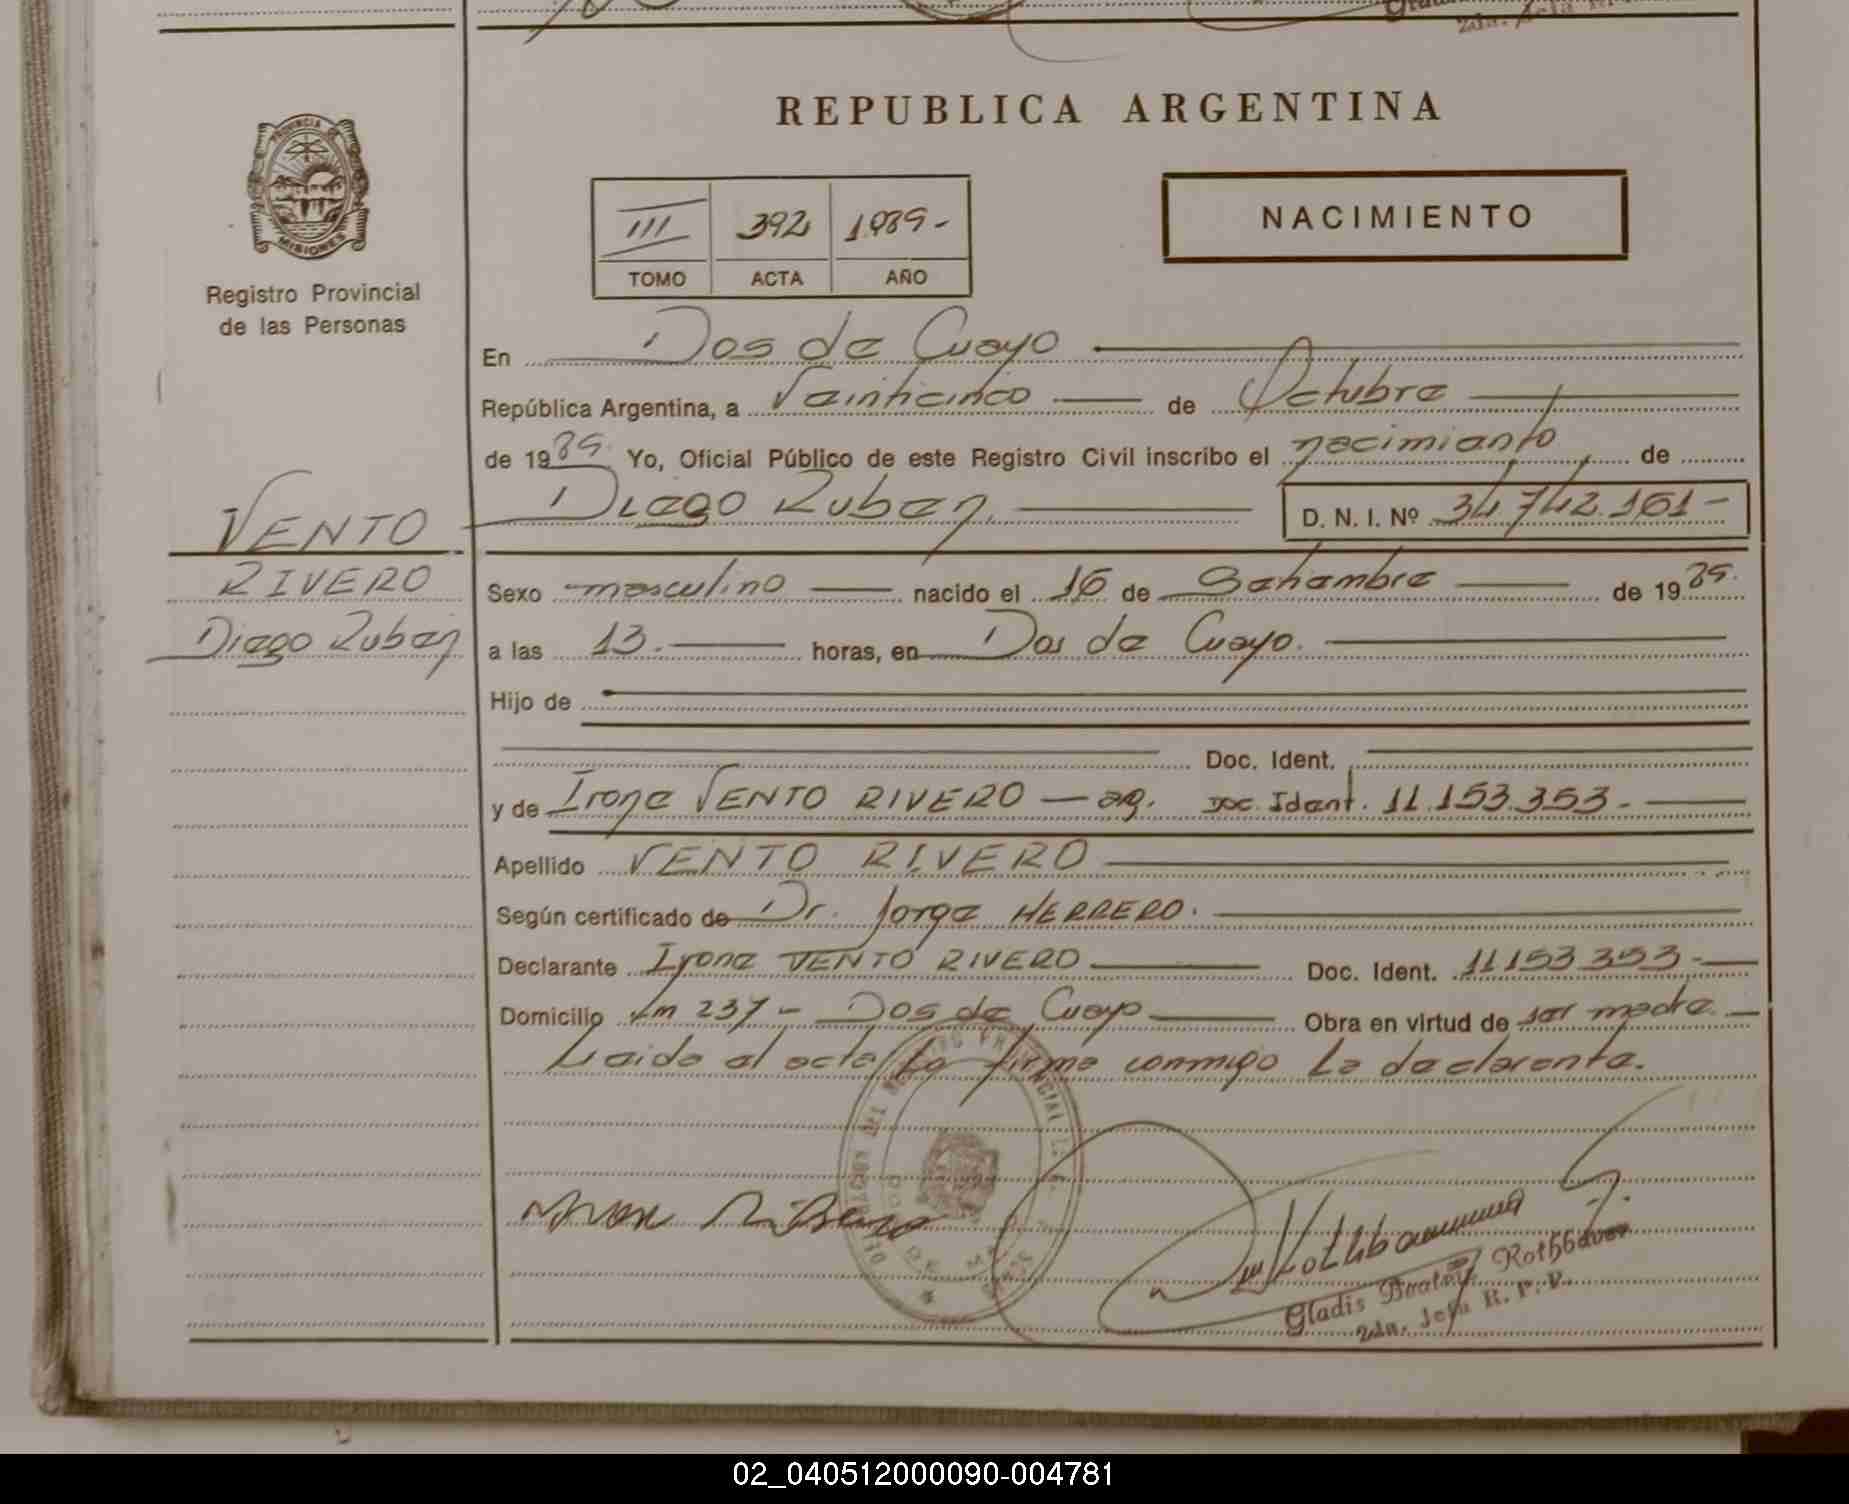 REPUBLICA ARGENTINA
PROVINCIA DE
MISIONES
Registro Provincial
de las Personas
III 392 1989-
TOMO ACTA AÑO
NACIMIENTO
En Dos de Mayo
República Argentina, a Veinticinco de Octubre
de 1989. Yo, Oficial Público de este Registro Civil inscribo el nacimiento de
Diego Ruben, D. N. I. Nº 34.742.161-
VENTO
RIVERO
Diego Ruben
Sexo masculino nacido el 16 de Setiembre de 1989.
a las 13. horas, en Dos de Mayo.
Hijo de
Doc. Ident.
y de Irone VENTO RIVERO - ag. Doc. Ident. 11.153.353.-
Apellido VENTO RIVERO
Según certificado de Dr. Jorge HERRERO.
Declarante Irone VENTO RIVERO Doc. Ident. 11153353.-
Domicilio Km 237 - Dos de Mayo Obra en virtud de ser madre.
Leida el acta la firma conmigo la declarante.
Rothbauer
Gladis Beatriz Rothbauer
2da. Jefa R. P. P.
02_040512000090-004781